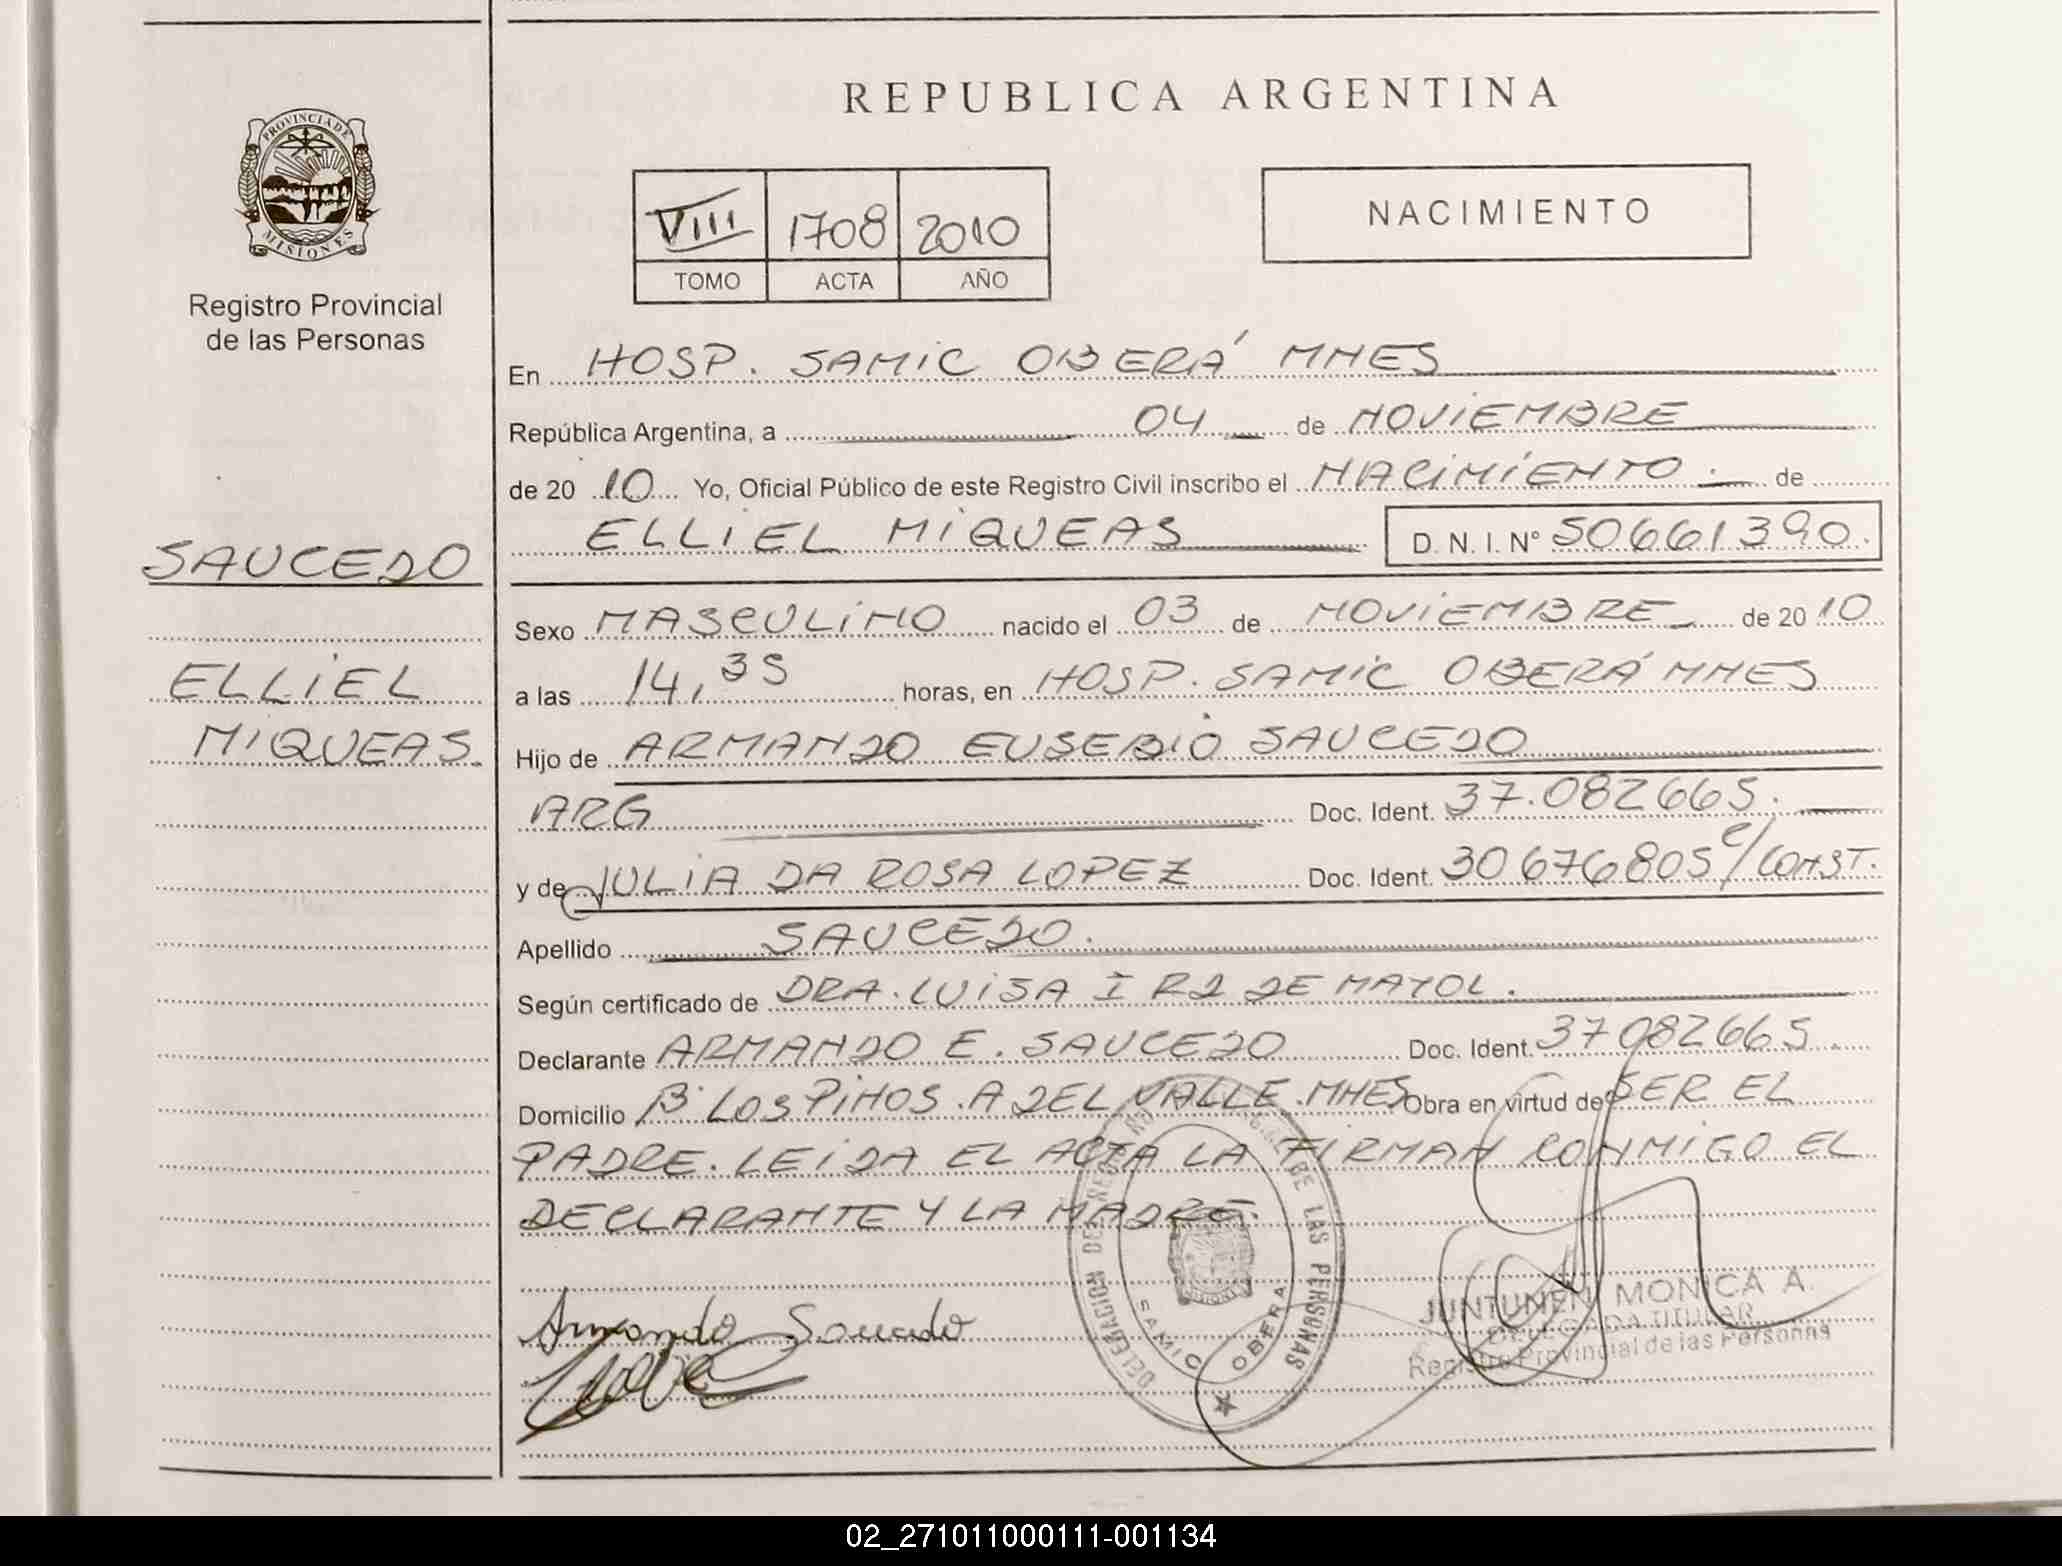 REPUBLICA ARGENTINA
PROVINCIA DE MISIONES
Registro Provincial
de las Personas
VIII 1708 2010
TOMO ACTA AÑO
NACIMIENTO
En HOSP. SAMIC OBERÁ MNES
República Argentina, a 04 de NOVIEMBRE
de 20 10 Yo, Oficial Público de este Registro Civil inscribo el NACIMIENTO. de
ELLIEL MIQUEAS D. N. I. N° 50661390.
SAUCEDO
ELLIEL
MIQUEAS.
Sexo MASCULINO nacido el 03 de NOVIEMBRE de 20 10
a las 14,35 horas, en HOSP. SAMIC OBERÁ MNES
Hijo de ARMANDO EUSEBIO SAUCEDO
ARG Doc. Ident. 37.082665.
y de JULIA DA ROSA LOPEZ Doc. Ident. 30676805 c/CONST.
Apellido SAUCEDO.
Según certificado de DRA. LUISA I RD DE MAYOL.
Declarante ARMANDO E. SAUCEDO Doc. Ident. 37082665.
Domicilio B° LOS PINOS. A DEL VALLE. MNES Obra en virtud de SER EL
PADRE. LEIDA EL ACTA LA FIRMAN CONMIGO EL
DECLARANTE Y LA MADRE.
Armando Saucedo
DELEGACION DEL REG DE LAS PERSONAS
SAMIC OBERA
JUNTUNEN MONICA A.
DELEGADA TITULAR
Registro Provincial de las Personas
02_271011000111-001134